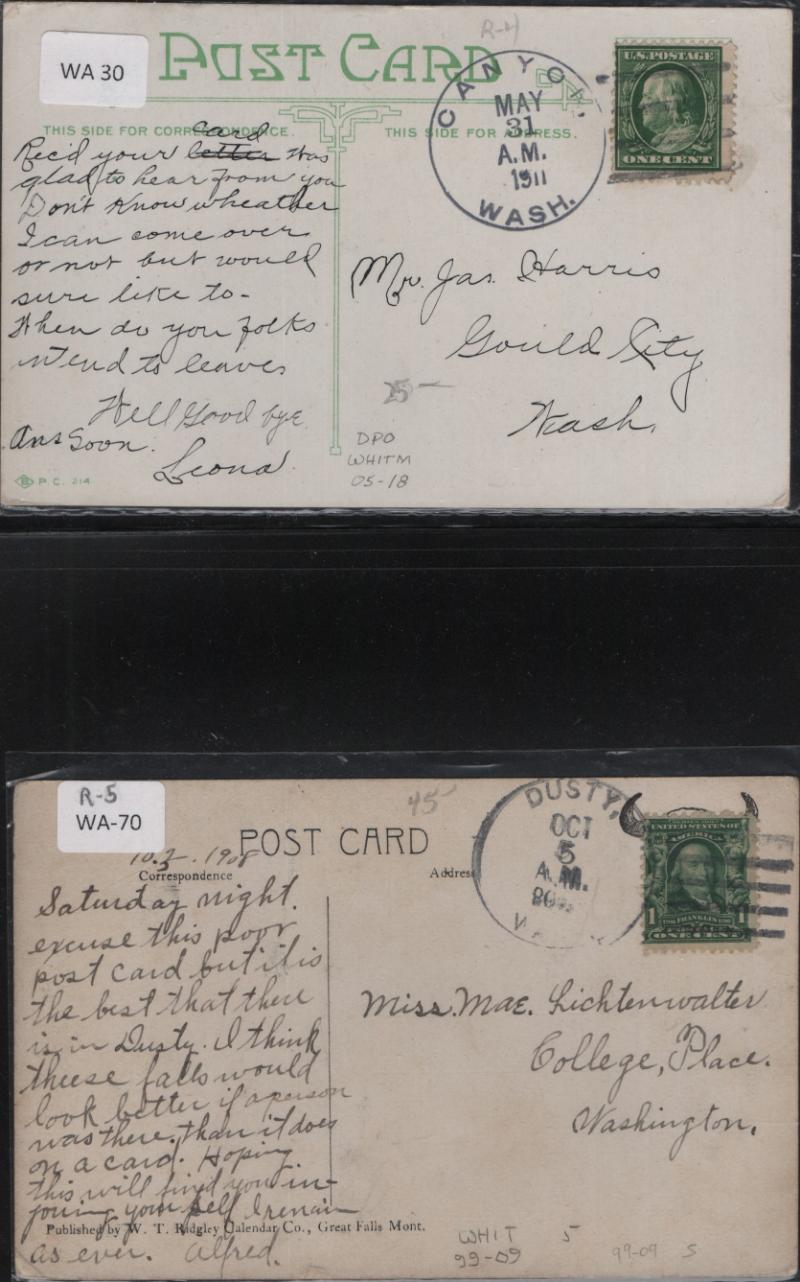 R-4
WA 30
POST CARD
THIS SIDE FOR CORRESPONDENCE.
THIS SIDE FOR ADDRESS.
CANYON,
MAY
31
A.M.
1911
WASH.
U.S. POSTAGE
ONE CENT
card
Rec'd your letter Was
glad to hear from you
Don't Know wheather
I can come over
or not but would
sure like to-
When do you folks
intend to leave
Well Good bye
Ans Soon.
Leona
Mr. Jas. Harris
Gould City
Wash.
25-
DPO
WHITM
05-18
P.C. 214
R-5
WA-70
45
10.3.1908
POST CARD
Correspondence
Address
DUSTY,
OCT
5
A.M.
UNITED STATES OF
AMERICA
1 FRANKLIN 1
POSTAGE
ONE CENT
Saturday night.
excuse this poor
post card but it is
the best that there
is in Dusty. I think
theese falls would
look better if a person
was there. than it does
on a card. Hoping
this will find you in-
joying your self I remain
as ever. Alfred.
Miss. Mae. Lichtenwalter
College, Place.
Washington.
Published by W. T. Ridgley Calendar Co., Great Falls Mont.
WHIT 5
99-09
99-09 5